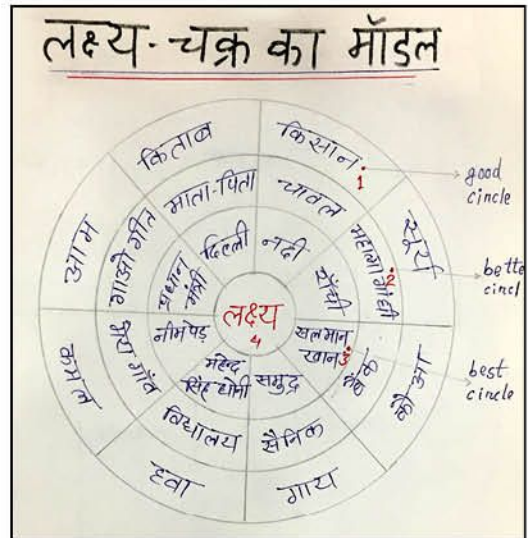 लक्ष्य-चक्र का मॉडल
किताब
किसान
1
सूर्य
कौआ
गाय
हवा
कमल
आम
माता-पिता
चावल
महात्मा गांधी
2
सैनिक
विद्यालय
मेरा गाँव
गाओ गीत
दिल्ली
नदी
राँची
सलमान
खान 3
समुद्र
महेन्द्र
सिंह धोनी
नीम पेड़
प्रधान
मंत्री
लक्ष्य
4
good
cincle
bette
cincl
best
cincle